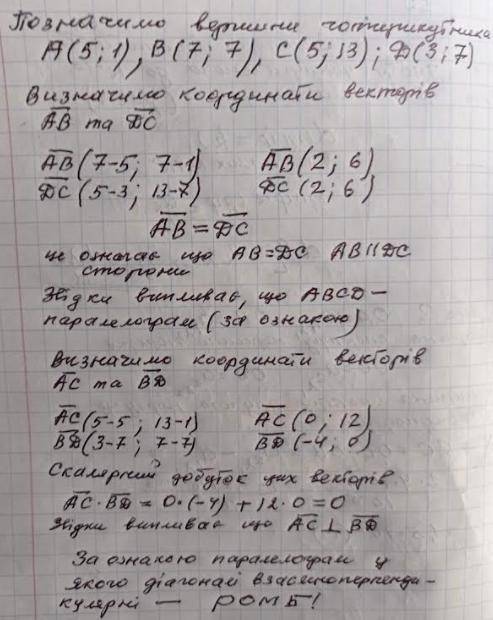 Позначимо вершини чотирикутника
A(5;1), B(7; 7), C(5;13); D(3;7)
Визначимо координати векторів
AB та DC
AB(7-5; 7-1) AB(2; 6)
DC(5-3; 13-7) DC(2; 6)
AB = DC
це означає що AB=DC AB||DC
сторони
Звідки випливає, що ABCD –
паралелограм (за ознакою)
Визначимо координати векторів
AC та BD
AC(5-5; 13-1) AC(0; 12)
BD(3-7; 7-7) BD(-4; 0)
Скалярний добуток цих векторів
AC·BD = 0·(-4) + 12·0 = 0
Звідки випливає що AC⊥BD
За ознакою паралелограм у
якого діагоналі взаємоперпенди-
кулярні — РОМБ!